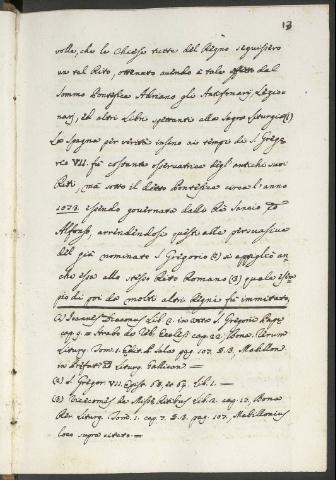 13
volle, che le Chiese tutte del Regno seguissero
un tal Rito, ottenuti avendo a tale effetto dal
Sommo Pontefice Adriano gli Antifonarj, Lezio-
narj, ed altri Libri spettanti alla Sagra Liturgia (1)
La Spagna per verità insino ai tempi di S. Grego-
rio VII. fù costante osservatrice degl' antichi suoi
Riti, mà sotto il detto Pontefice circa l'anno
1073. essendo governata dallo Rè Sancio, ed
Alfonso, arrendendosi questi alla persuasiva
del già nominato S. Gregorio (2) si appigliò an-
che essa allo stesso Rito Romano (3) quale
di poi da molti altri Regni fù immitato
(1) Joannes Diaconus Lib. 2. in vita S. Gregorii Papae
cap. 9. Strabo de Reb. Eccles. cap. 22. Bona Rerum
Liturg. Tom. 1. pag. 107. Mabillon
Liturg. Gallican.
(2) S. Gregor. VII. Epist. 58. 64. Lib. 1.
(3) Vicecomes de Missae Ritibus Lib. 2. cap. 12. Bona
Rer. Liturg. Tom. 1. cap. 7. pag. 107. Mabillonius
loco supra citato